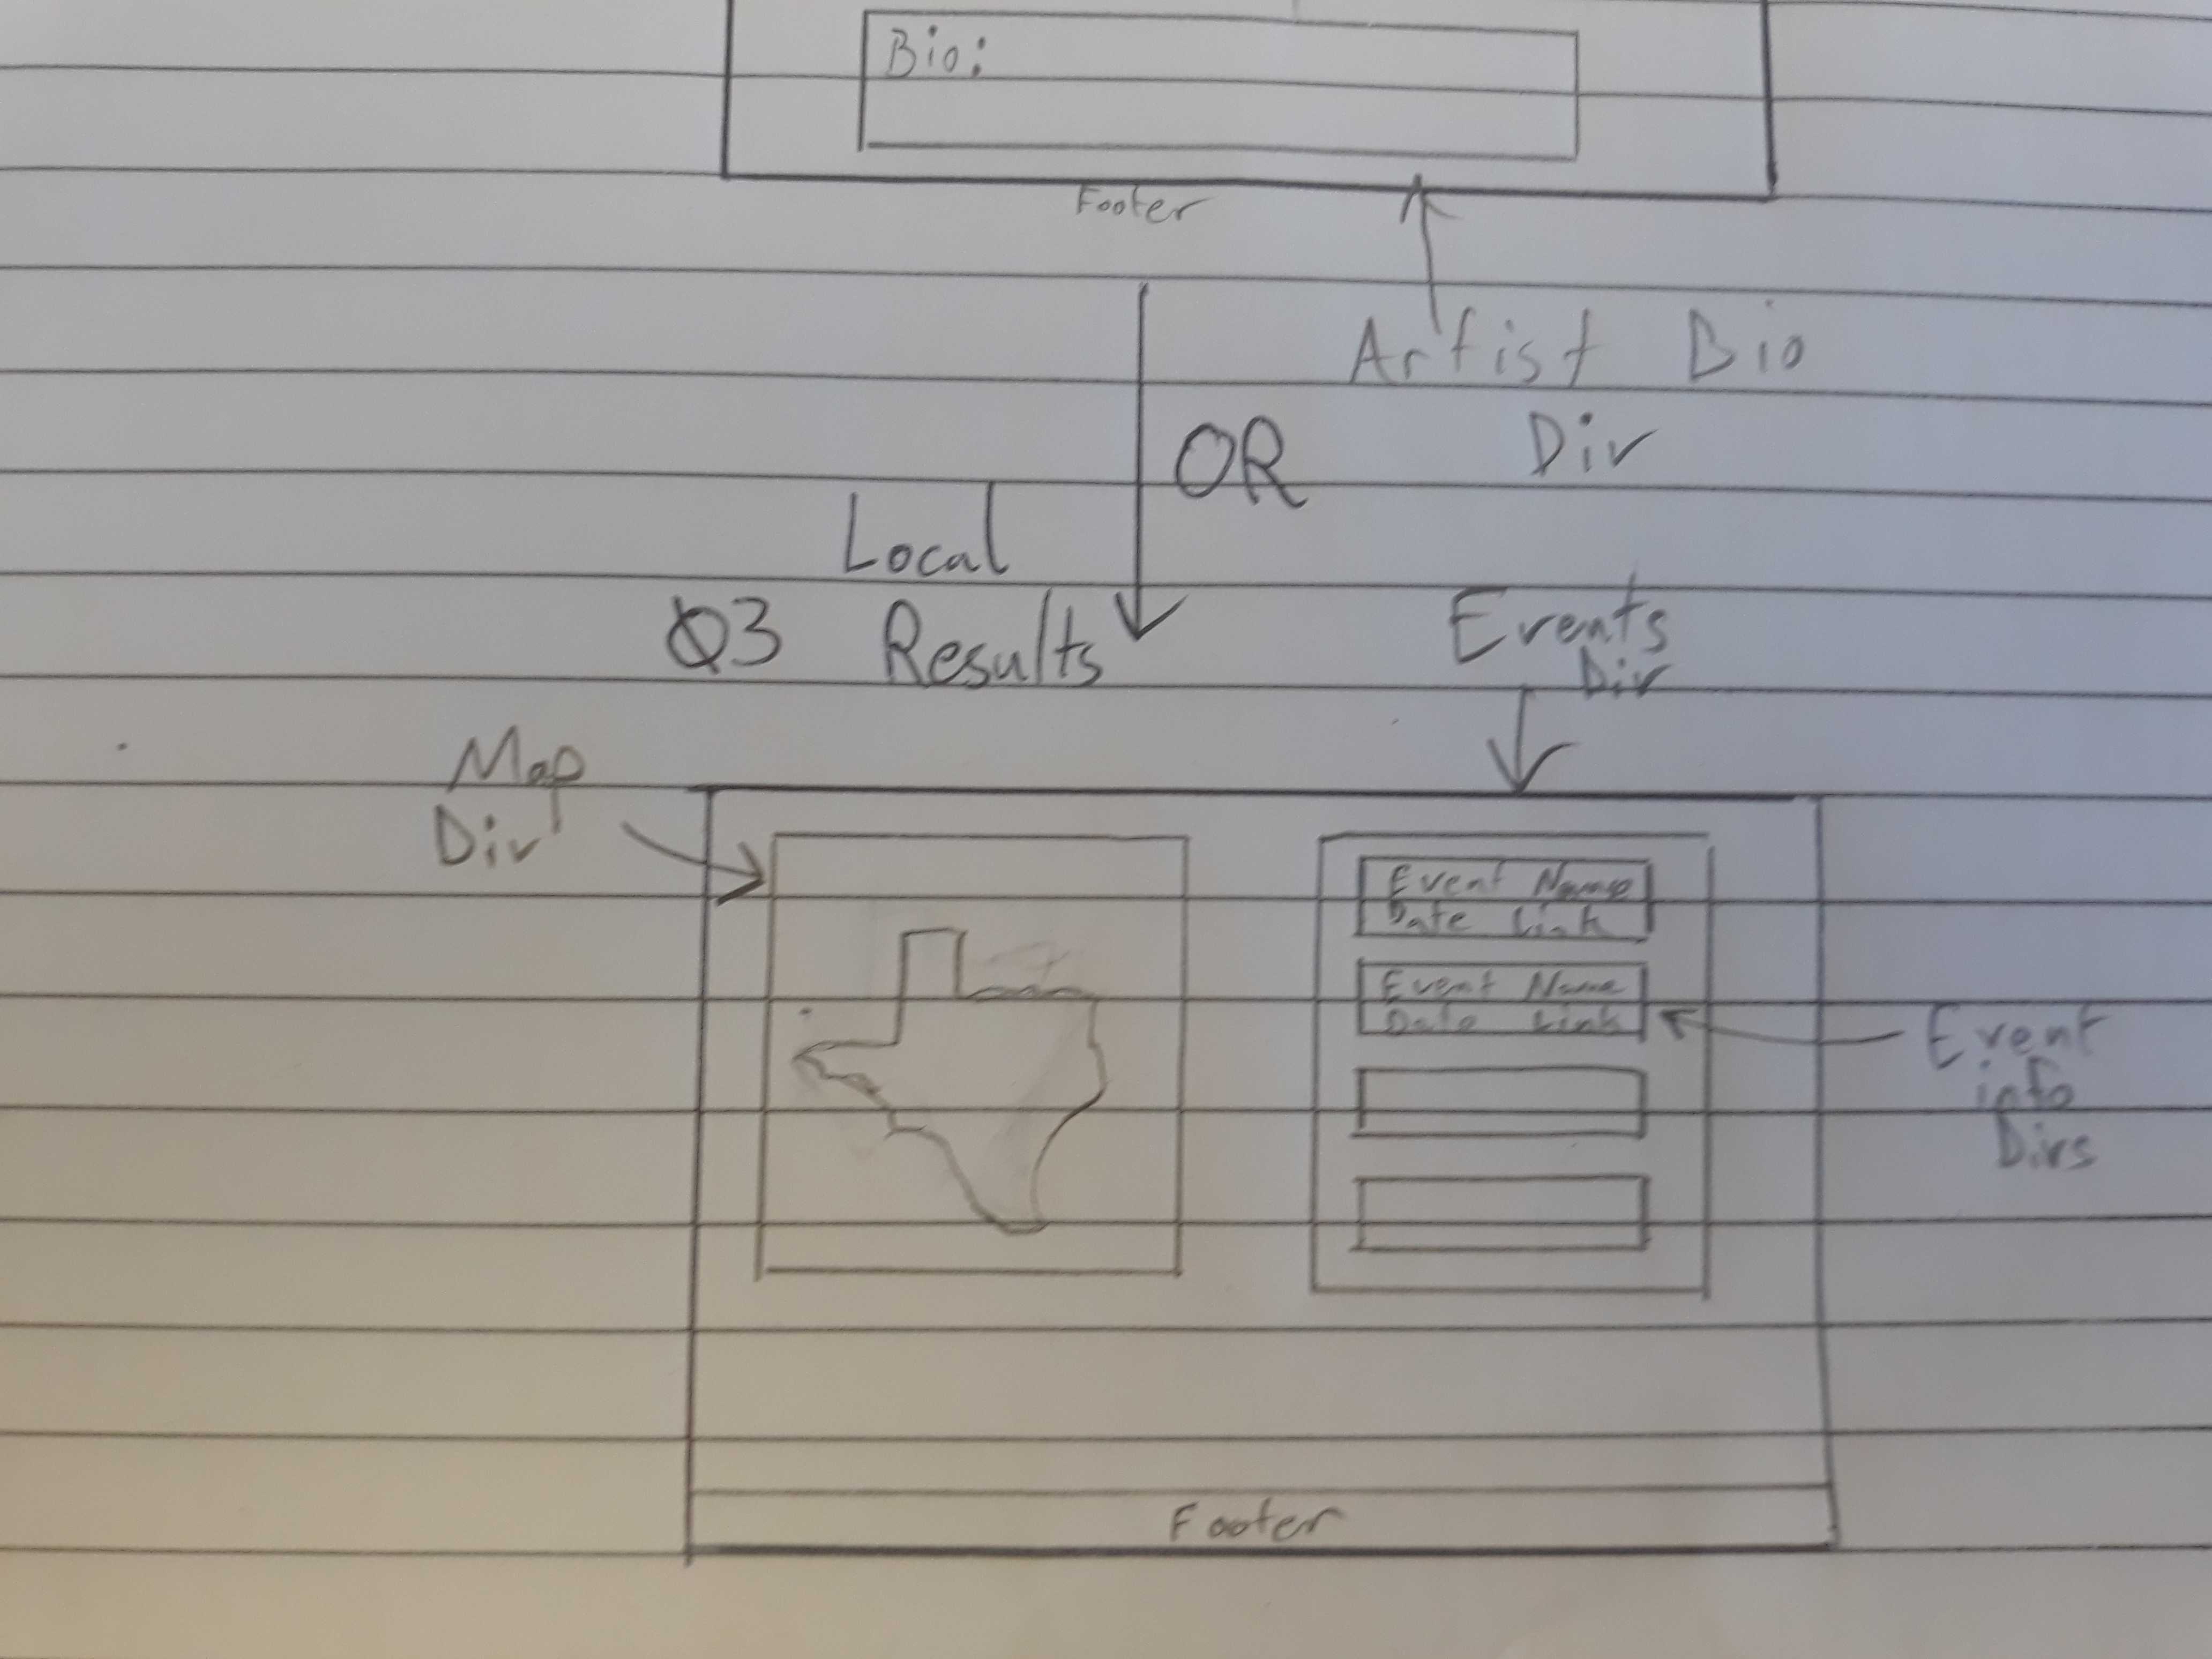 Bio:
Footer
Artist Bio
Div
OR
Local
Q3 Results
Events
Div
Map
Div
Event Name
Date Link
Event Name
Date Link
Event
info
Divs
Footer